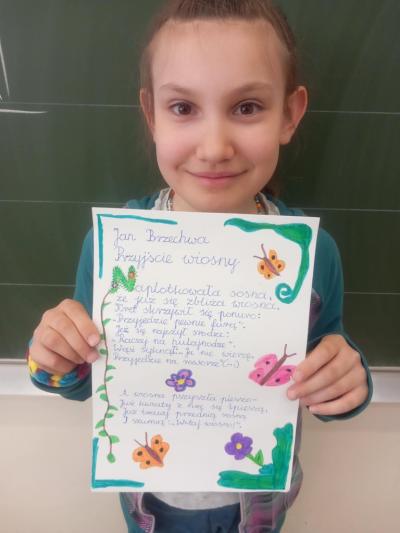 Jan Brzechwa
Przyjście wiosny
Naplotkowała sosna,
że już się zbliża wiosna.
Kret skrzywił się ponuro:
- Przyjedzie pewnie furą...-
Jeż się najeżył srodze:
- Raczej na hulajnodze.-
Wąż syknął: - Ja nie wierzę,
Przyjedzie na rowerze. (...)
A wiosna przyszła pieszo-
Już kwiaty z nią się spieszą,
Już trawy przed nią rosną
I szumią: - Witaj wiosno!-